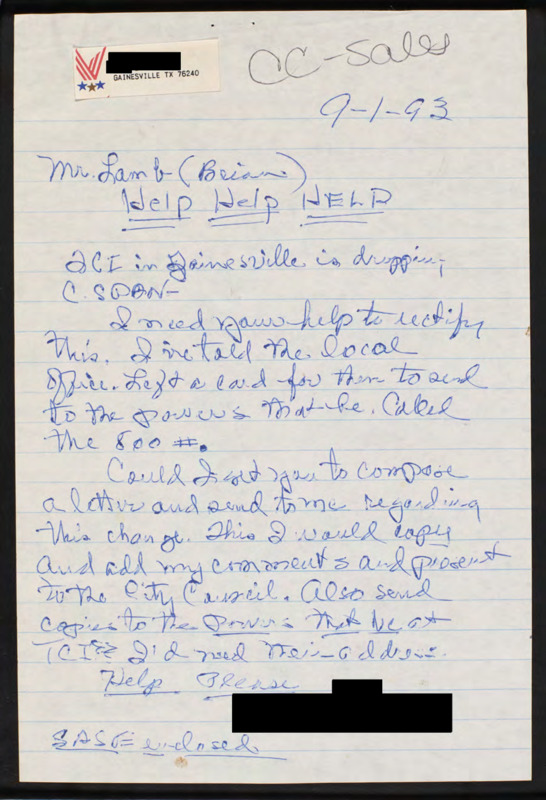 GAINESVILLE TX 76240
CC-Sales
9-1-93
Mr. Lamb (Brian)
Help Help HELP
TCI in Gainesville is dropping
C. SPAN-
I need your help to rectify
this. I've told the local
office. Left a card for them to send
to the powers that be. Called
the 800 #.
Could I get you to compose
a letter and send to me regarding
this change. This I would copy
and add my comments and present
to the City Council. Also send
copies to the powers that be at
TCI I'd need their address.
Help Please
SASE enclosed